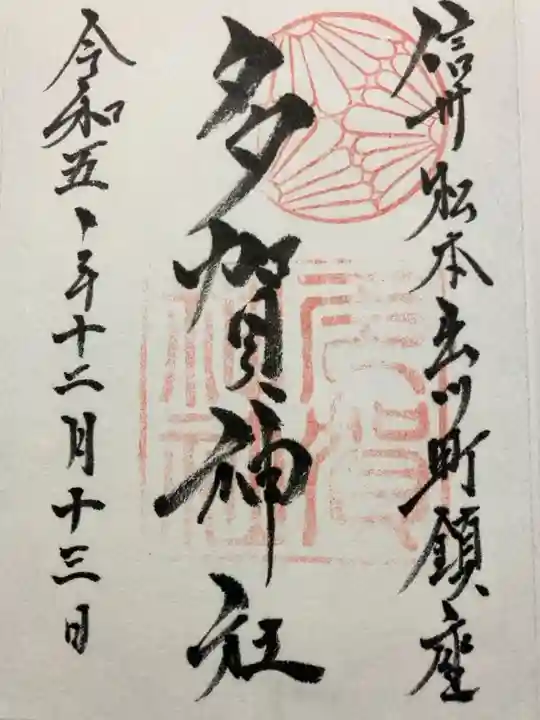 信州松本出川町鎮座
多賀神社
令和五年十二月十三日
多賀
神社